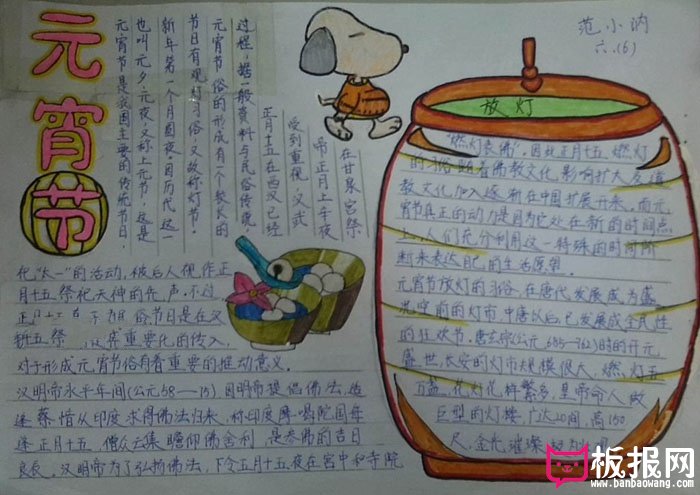 元宵节
范小汭
六.(6)
元宵节是我国主要的传统节日,
也叫元夕、元夜,又称上元节,这是
新年第一个月圆夜。因历代这一
节日有观灯习俗,又故称灯节。
元宵节俗的形成有一个较长的
过程,据一般资料与民俗传说,
正月十五在西汉已经
受到重视,汉武
帝正月上辛夜
在甘泉宫祭
祀“太一”的活动,被后人视作正
月十五祭祀天神的先声。不过
正月十五 俗节日是在汉
新五祭 重要化的传入,
对于形成元宵节俗有着重要的推动意义。
汉明帝永平年间(公元58— ),因明帝提倡佛法,
蔡愔从印度求得佛法归来,称印度摩喝陀国每
逢正月十五,僧众云集瞻仰佛舍利,是参佛的吉日
良辰。汉明帝为了弘扬佛法,下令正月十五夜在宫中和寺院
放灯
“燃灯表佛”。因此正月十五燃灯
的习俗随着佛教文化影响扩大及道
教文化加入逐渐在中国扩展开来。而元
宵节真正的动力是因为它处在新的时间点
上,人们充分利用这一特殊的时间阶
来表达自己的生活愿望。
元宵节放灯的习俗,在唐代发展成为盛
况空前的灯市,中唐以后,已发展成全民性
的狂欢节。唐玄宗(公元685—762)时的开元
盛世,长安的灯市规模很大,燃灯五
万盏,花灯花样繁多,皇帝命人做
巨型的灯楼,广达20间,高150
尺,金光璀璨,极为
板报网
www.banbaowang.com